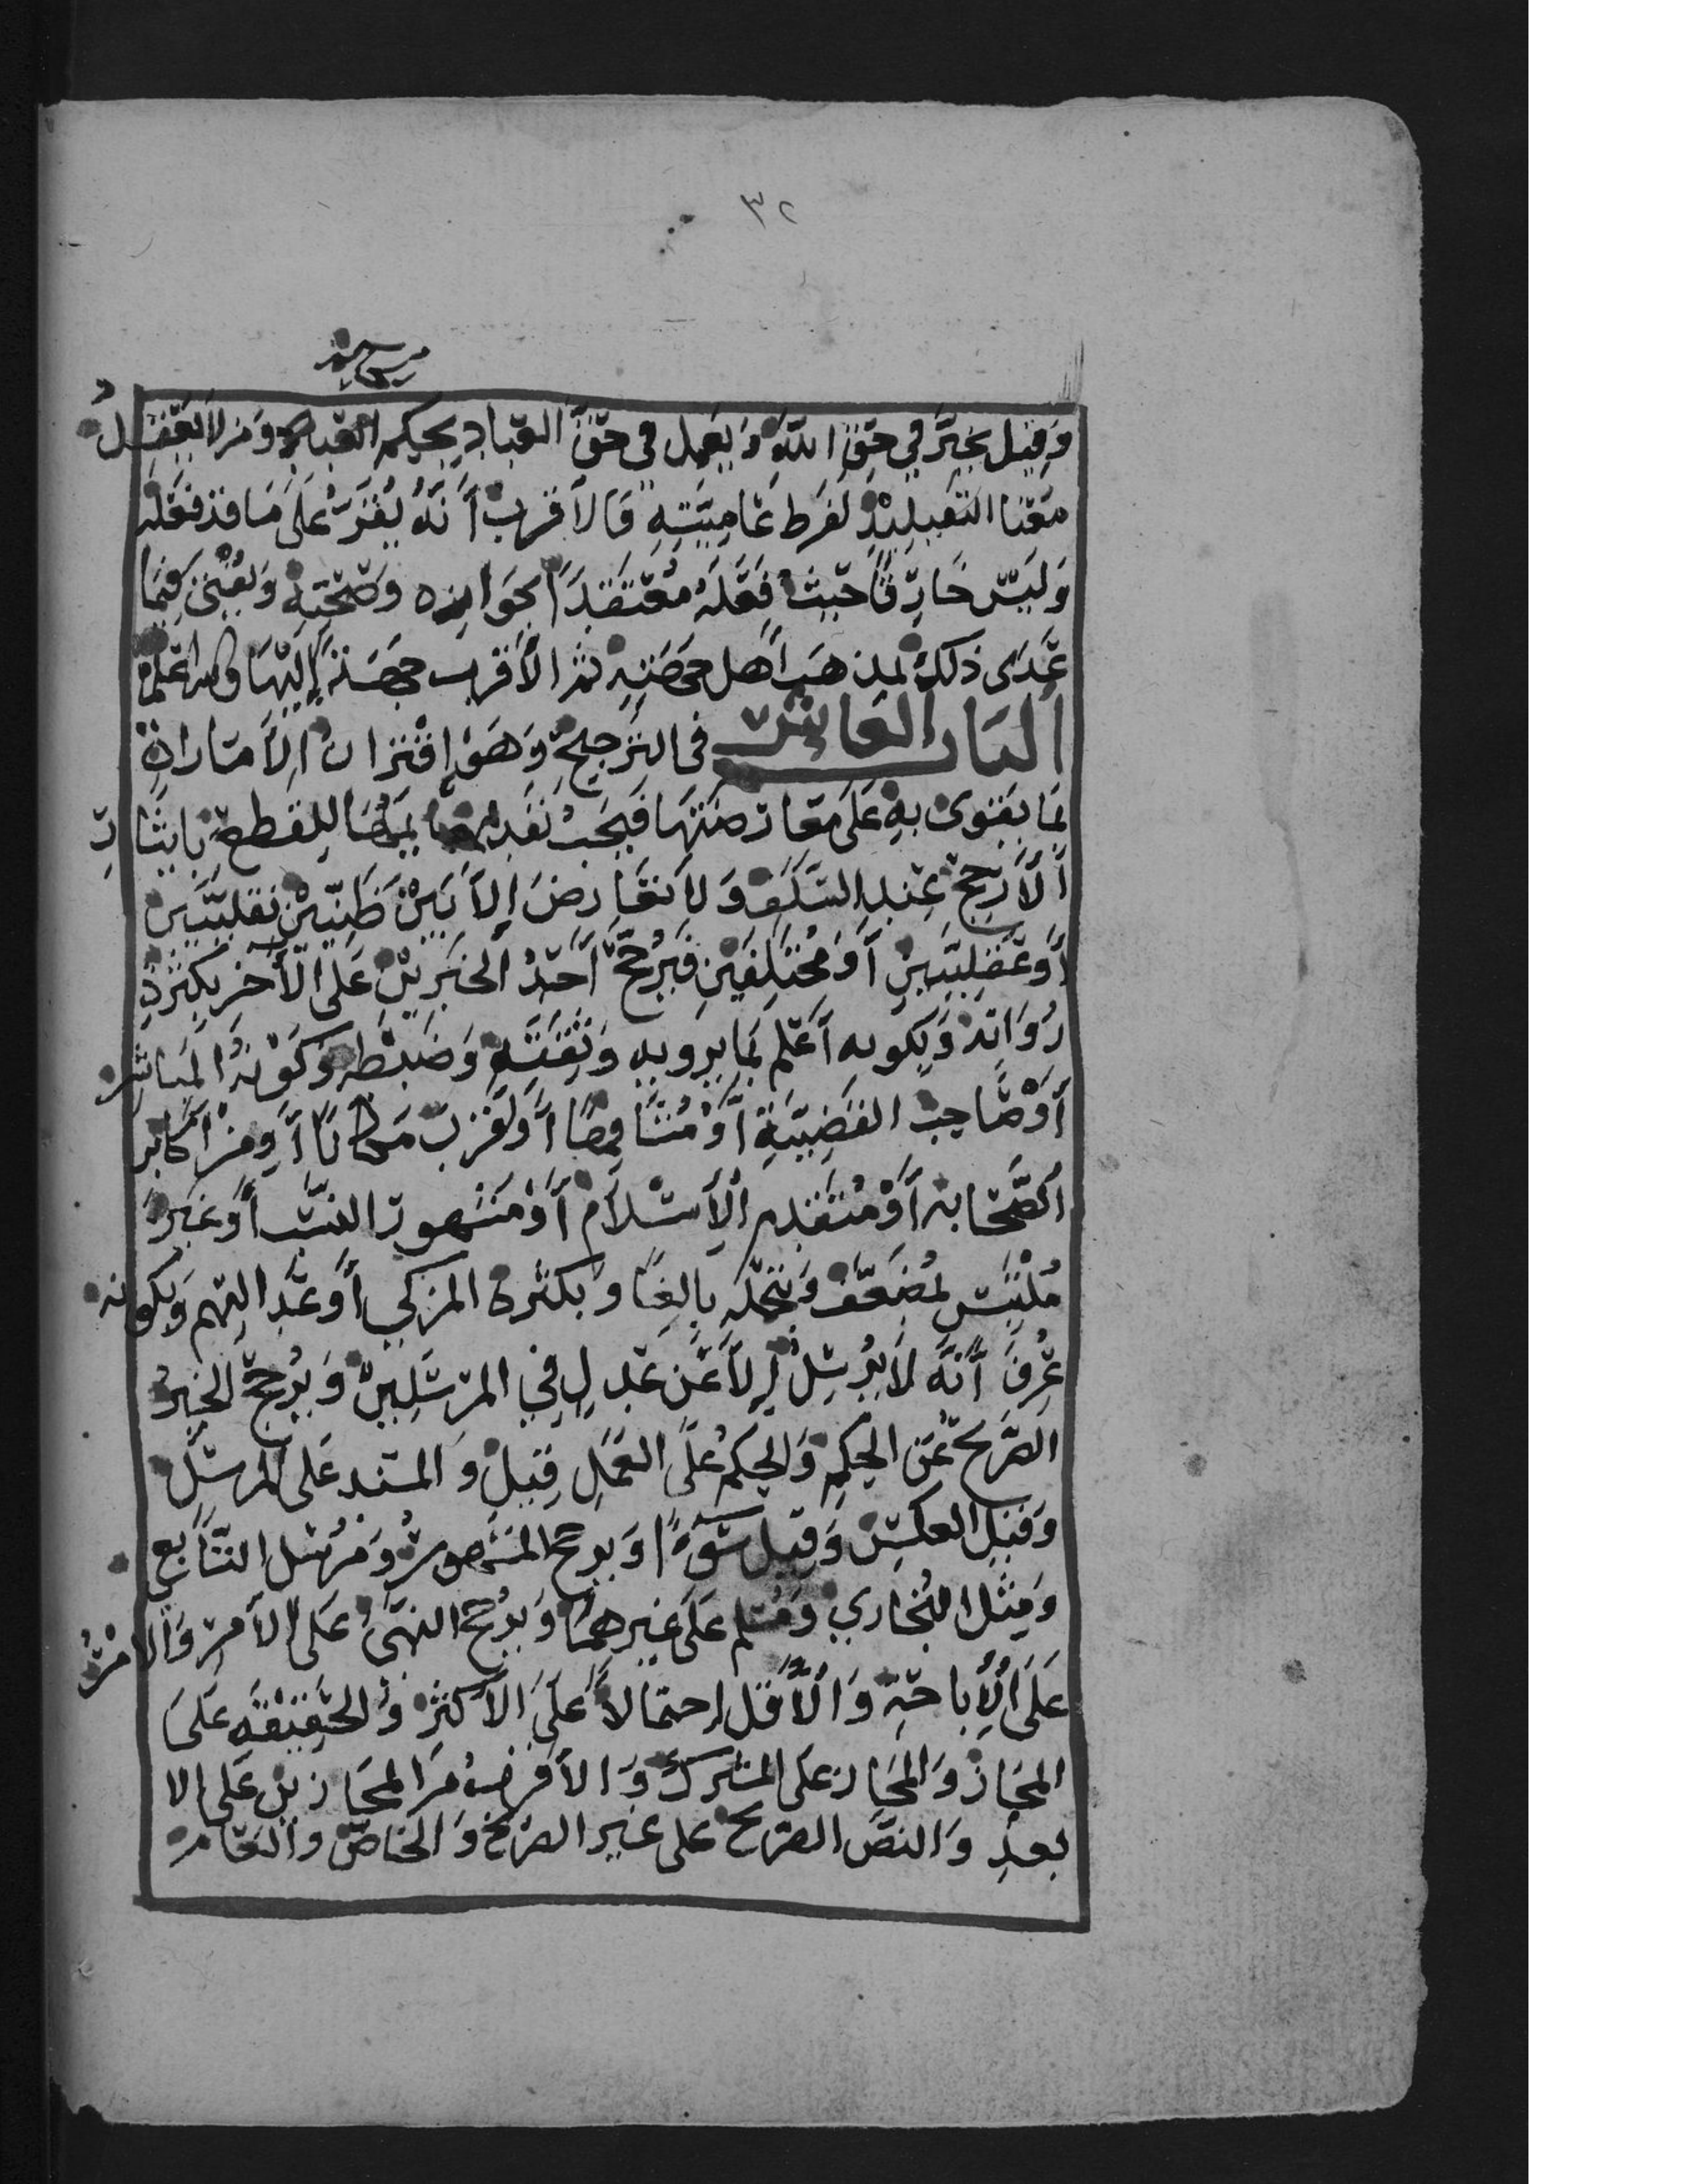 ٣٢
وَقِيل يخيَّر في حَقِّ اللّهِ وَيعمل في حَقِّ العباد بحكم الحاكم وَمن لا يعقل
معنا التقليد لفرط عَاميَّتِهِ فالأقرب أَنَّهُ يُقَرُّ عَلَى مَا قد فعله
وَليس خارقًا حيثُ فعَلَهُ مُعتقدًا لجوازه وَصحتِهِ وَيُفتى فيما
عَدَى ذلك بمذهَب أهل جهَتِهِ ثم الأقرب جهَة إليهَا والله اعلم
البَاب العَاشر في الترجيح وَهوَ إقتران الأَمَارة
بمَا يقوى به عَلَى مَعَارضتهَا فيجَبُ تقديمهَا للقطع بإيثار
الأَرجح عند السَّلَف وَلا تعَارضَ إلاَّ بَيْن ظنِّيَّيْن نقليَّيْن
أَو عَقليَّيْنِ أَو مُختَلِفَيْنِ فَيُرجَّحُ أَحَدُ الخبَرَيْنِ عَلى الأَخر بكثرَةِ
رُوَاته وَبكونه أَعْلَم بمَا يرويهِ وَبثقَتِهِ وَضَبْطهِ وَكَوْنهُ المبَاشر
أَوْ صَاحِبَ القضيَّةِ أَوْ مُشَافِهًا أَو أَقرَبَ مَكانًا أَو مِنْ أكابر
الصَّحَابه أَوْ مُتَقَدِّم الإسْلاَم أَوْ مَشهور النسَب أَو غَيْرَ
مُلْتَبِس بمُضَعَّف وَبتحمُّله بالِغًا وَبكثرة المزكي أَو عَدَالتهم وَبكونه
عُرِفَ أَنَّه لاَ يُرْسِلُ إِلاَّ عَنْ عَدلٍ في المرسَلَيْن وَيُرجَّح الخبرُ
الصَّريح عَن الحكم وَالحكم عَلَى العَمَل قِيلَ وَالمسند عَلى المرسَل
وَقيل العكس وَقيل سَوَاءً وَيرجح المشهور وَمُرْسَل التَّابعي
وَمثل البُخاري وَمُسلم عَلَى غيرهمَا وَيُرجح النهي عَلى الأمر وَالامرُ
عَلَى الإبَاحة وَالأَقل إحتمَالاً عَلَى الأَكثر وَالحقيقة عَلَى
المجَاز وَالمجَاز عَلى المشترك وَالأَقرب من المجَازَيْن عَلَى الا
بعد وَالنصّ الصَّريح عَلى غير الصَّريح وَالخاصّ وَالعَام